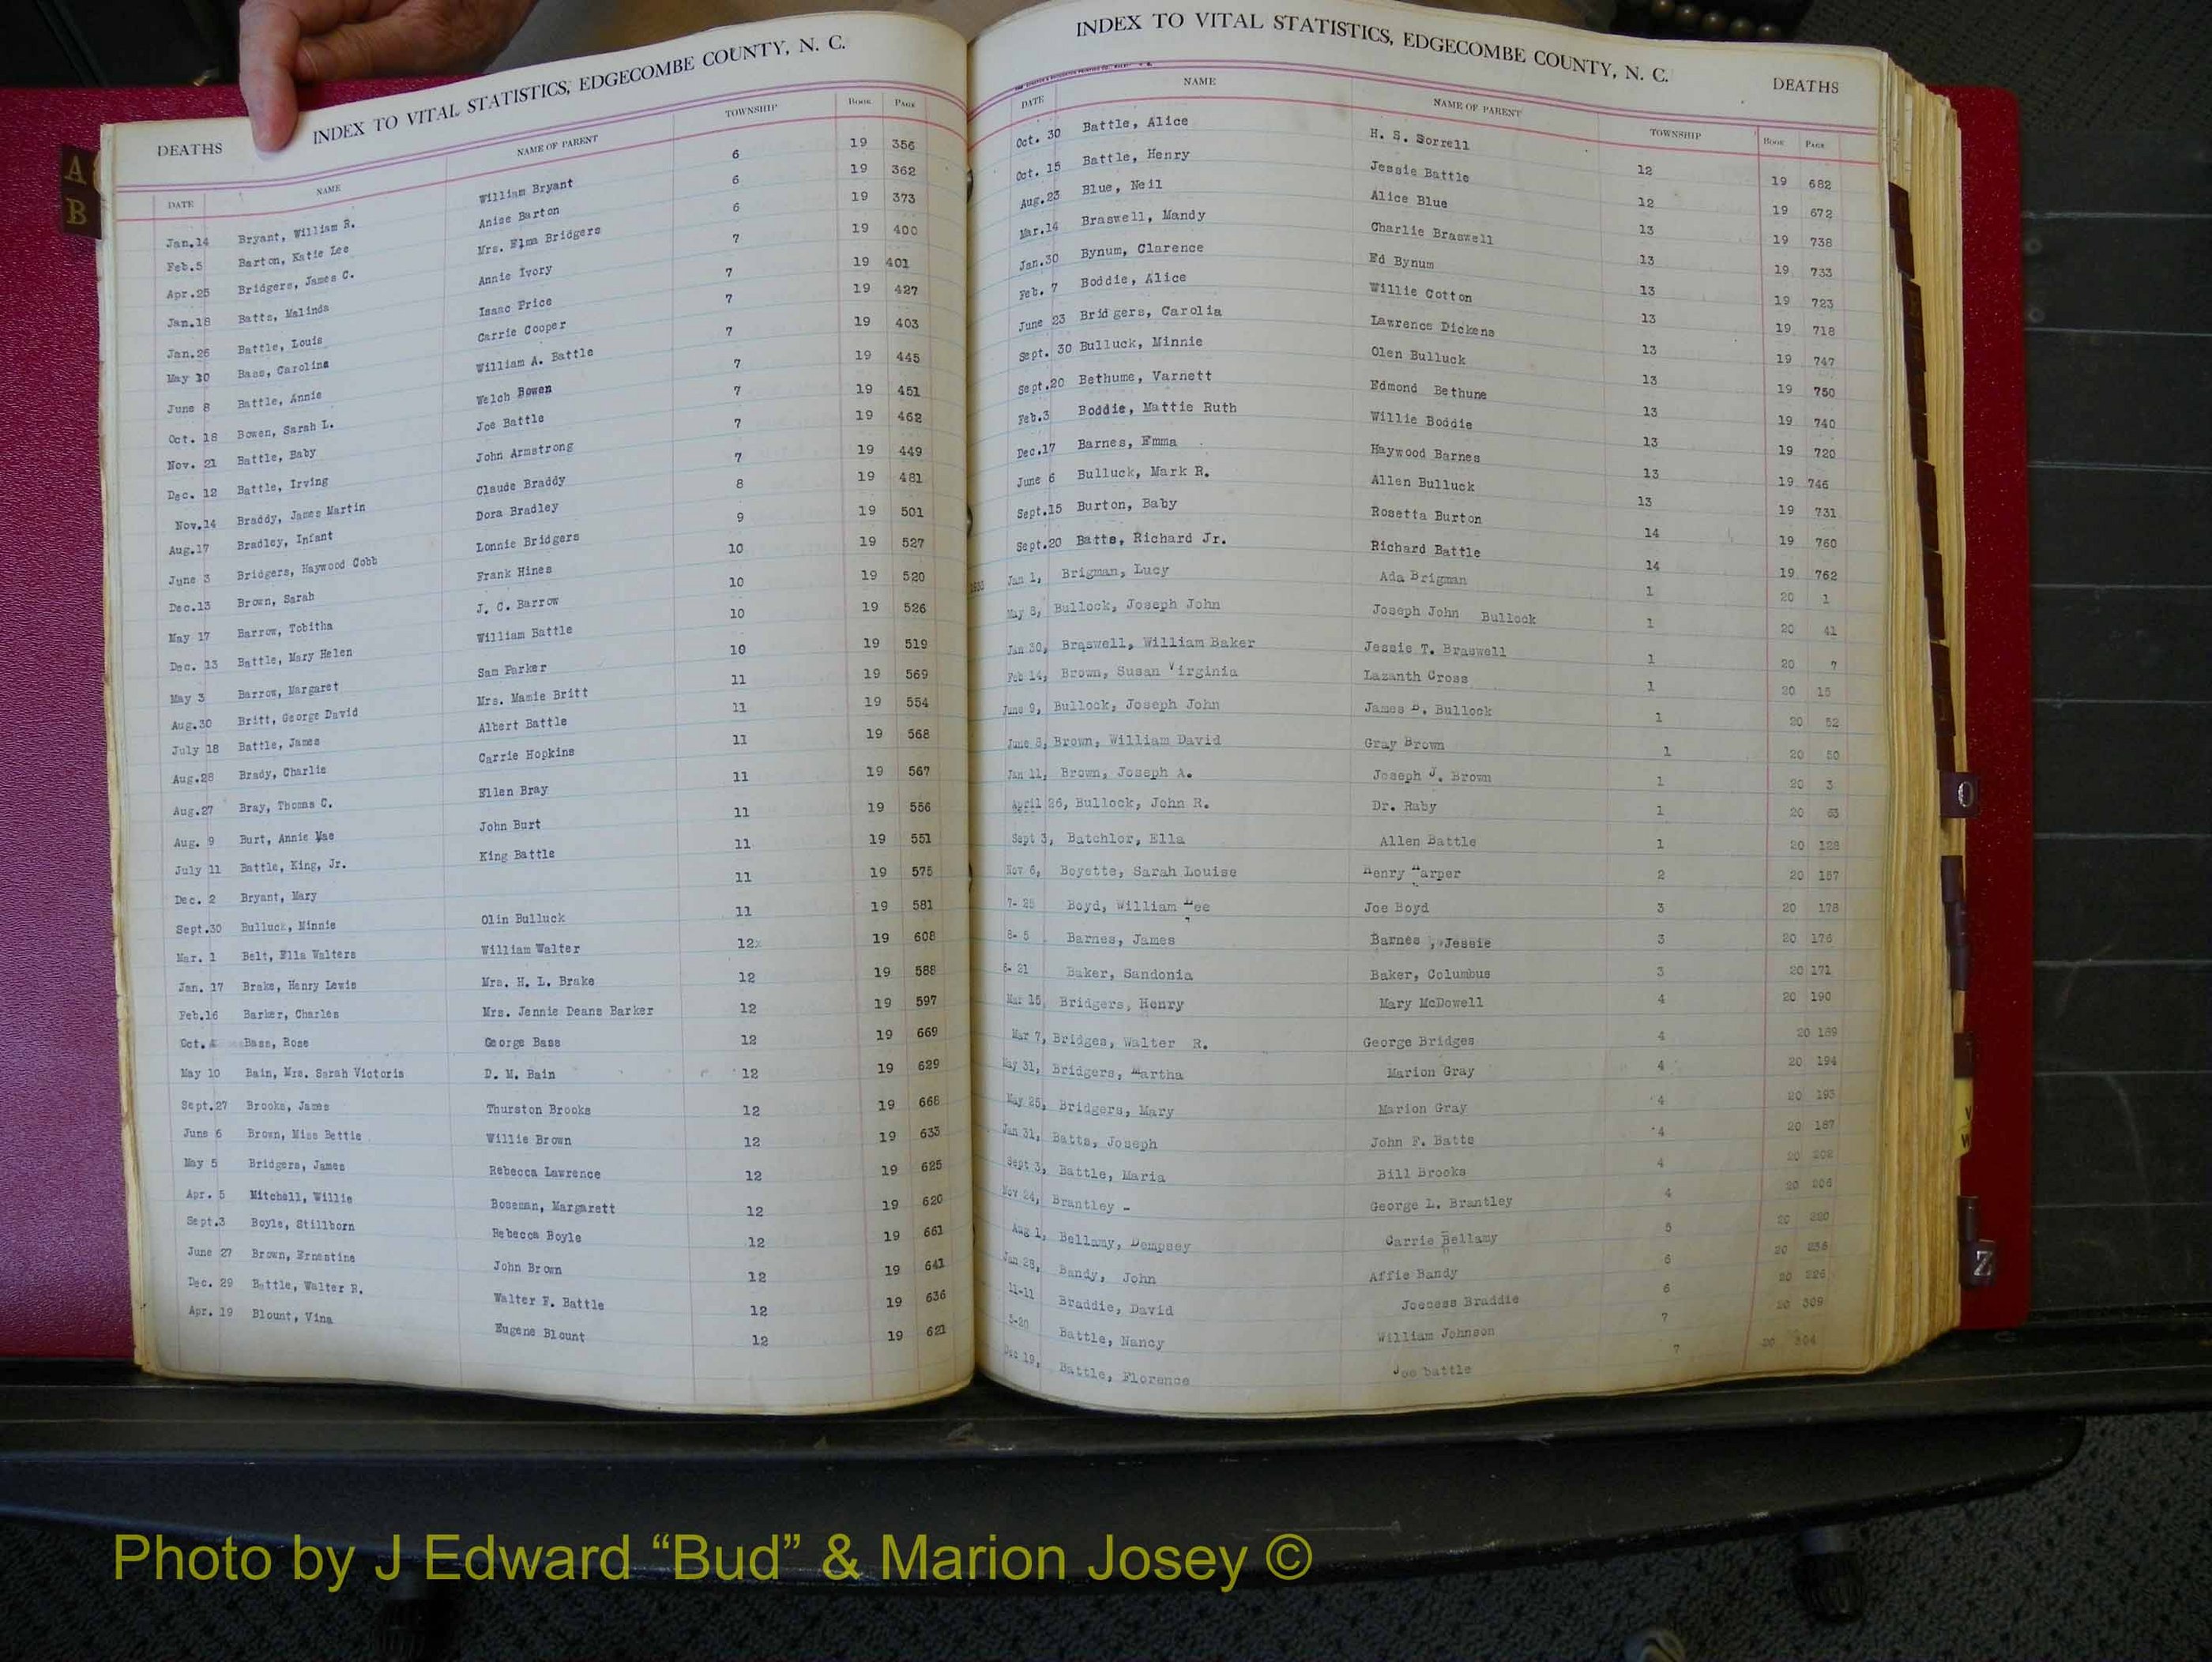 INDEX TO VITAL STATISTICS, EDGECOMBE COUNTY, N. C.
DEATHS
DATE NAME NAME OF PARENT TOWNSHIP BOOK PAGE
Jan.14 Bryant, William R. William Bryant 6 19 356
Feb.5 Barton, Katie Lee Anise Barton 6 19 362
Apr.25 Bridgers, James C. Mrs. Elma Bridgers 6 19 373
Jan.18 Batts, Malinda Annie Ivory 7 19 400
Jan.26 Battle, Louis Isaac Price 7 19 401
May 10 Bass, Caroline Carrie Cooper 7 19 427
June 8 Battle, Annie William A. Battle 7 19 403
Oct. 18 Bowen, Sarah L. Welch Bowen 7 19 445
Nov. 21 Battle, Baby Joe Battle 7 19 451
Dec. 12 Battle, Irving John Armstrong 7 19 462
Nov.14 Braddy, James Martin Claude Braddy 7 19 449
Aug.17 Bradley, Infant Dora Bradley 8 19 481
June 3 Bridgers, Haywood Cobb Lonnie Bridgers 9 19 501
Dec.13 Brown, Sarah Frank Hines 10 19 527
May 17 Barrow, Tobitha J. C. Barrow 10 19 520
Dec. 13 Battle, Mary Helen William Battle 10 19 526
May 3 Barrow, Margaret Sam Parker 10 19 519
Aug.30 Britt, George David Mrs. Mamie Britt 11 19 569
July 18 Battle, James Albert Battle 11 19 554
Aug.28 Brady, Charlie Carrie Hopkins 11 19 568
Aug.27 Bray, Thomas C. Ellen Bray 11 19 567
Aug. 9 Burt, Annie Mae John Burt 11 19 556
July 11 Battle, King, Jr. King Battle 11 19 551
Dec. 2 Bryant, Mary 11 19 575
Sept.30 Bulluck, Minnie Olin Bulluck 11 19 581
Mar. 1 Belt, Ella Walters William Walter 12 19 608
Jan. 17 Brake, Henry Lewis Mrs. H. L. Brake 12 19 588
Feb.16 Barker, Charles Mrs. Jennie Deans Barker 12 19 597
Oct. 4 Bass, Rose George Bass 12 19 669
May 10 Bain, Mrs. Sarah Victoria D. M. Bain 12 19 629
Sept.27 Brooks, James Thurston Brooks 12 19 668
June 6 Brown, Miss Bettie Willie Brown 12 19 633
May 5 Bridgers, James Rebecca Lawrence 12 19 625
Apr. 5 Mitchell, Willie Boseman, Margarett 12 19 620
Sept.3 Boyle, Stillborn Rebecca Boyle 12 19 661
June 27 Brown, Ernestine John Brown 12 19 641
Dec. 29 Battle, Walter R. Walter F. Battle 12 19 636
Apr. 19 Blount, Vina Eugene Blount 12 19 621
INDEX TO VITAL STATISTICS, EDGECOMBE COUNTY, N. C.
DEATHS
DATE NAME NAME OF PARENT TOWNSHIP BOOK PAGE
Oct. 30 Battle, Alice H. S. Sorrell 12 19 682
Oct. 15 Battle, Henry Jessie Battle 12 19 672
Aug.23 Blue, Neil Alice Blue 13 19 738
Mar.14 Braswell, Mandy Charlie Braswell 13 19 733
Jan.30 Bynum, Clarence Ed Bynum 13 19 723
Feb. 7 Boddie, Alice Willie Cotton 13 19 718
June 23 Bridgers, Carolia Lawrence Dickens 13 19 747
Sept. 30 Bulluck, Minnie Olen Bulluck 13 19 750
Sept.20 Bethume, Varnett Edmond Bethune 13 19 740
Feb.3 Boddie, Mattie Ruth Willie Boddie 13 19 720
Dec.17 Barnes, Emma Haywood Barnes 13 19 746
June 6 Bulluck, Mark R. Allen Bulluck 13 19 731
Sept.15 Burton, Baby Rosetta Burton 14 19 760
Sept.20 Batts, Richard Jr. Richard Battle 14 19 762
Jan 1, Brigman, Lucy Ada Brigman 1 20 1
May 8, Bullock, Joseph John Joseph John Bullock 1 20 41
Jan 30, Braswell, William Baker Jessie T. Braswell 1 20 7
Feb 14, Brown, Susan Virginia Lazanth Cross 1 20 15
June 9, Bullock, Joseph John James B. Bullock 1 20 52
June 8, Brown, William David Gray Brown 1 20 50
Jan 11, Brown, Joseph A. Joseph J. Brown 1 20 3
April 26, Bullock, John R. Dr. Raby 1 20 63
Sept 3, Batchlor, Ella Allen Battle 1 20 128
Nov 6, Boyette, Sarah Louise Henry Harper 2 20 157
7- 25 Boyd, William Lee Joe Boyd 3 20 178
8- 5 Barnes, James Barnes , Jessie 3 20 176
6- 21 Baker, Sandonia Baker, Columbus 3 20 171
Mar 15, Bridgers, Henry Mary McDowell 4 20 190
Mar 7, Bridges, Walter R. George Bridges 4 20 189
May 31, Bridgers, Martha Marion Gray 4 20 194
May 25, Bridgers, Mary Marion Gray 4 20 193
Jan 31, Batts, Joseph John F. Batts 4 20 187
Sept 3, Battle, Maria Bill Brooks 4 20 202
Nov 24, Brantley - George L. Brantley 4 20 206
Aug 1, Bellamy, Dempsey Carrie Bellamy 5 20 220
Jan 28, Bandy, John Affie Bandy 6 20
11-11 Braddie, David Joecess Braddie 6 20
Battle, Nancy William Johnson 7 20 309
Dec 19, Battle, Florence Joe battle 7 20 304
A
B
O
V
W
Z
Photo by J Edward “Bud” & Marion Josey ©